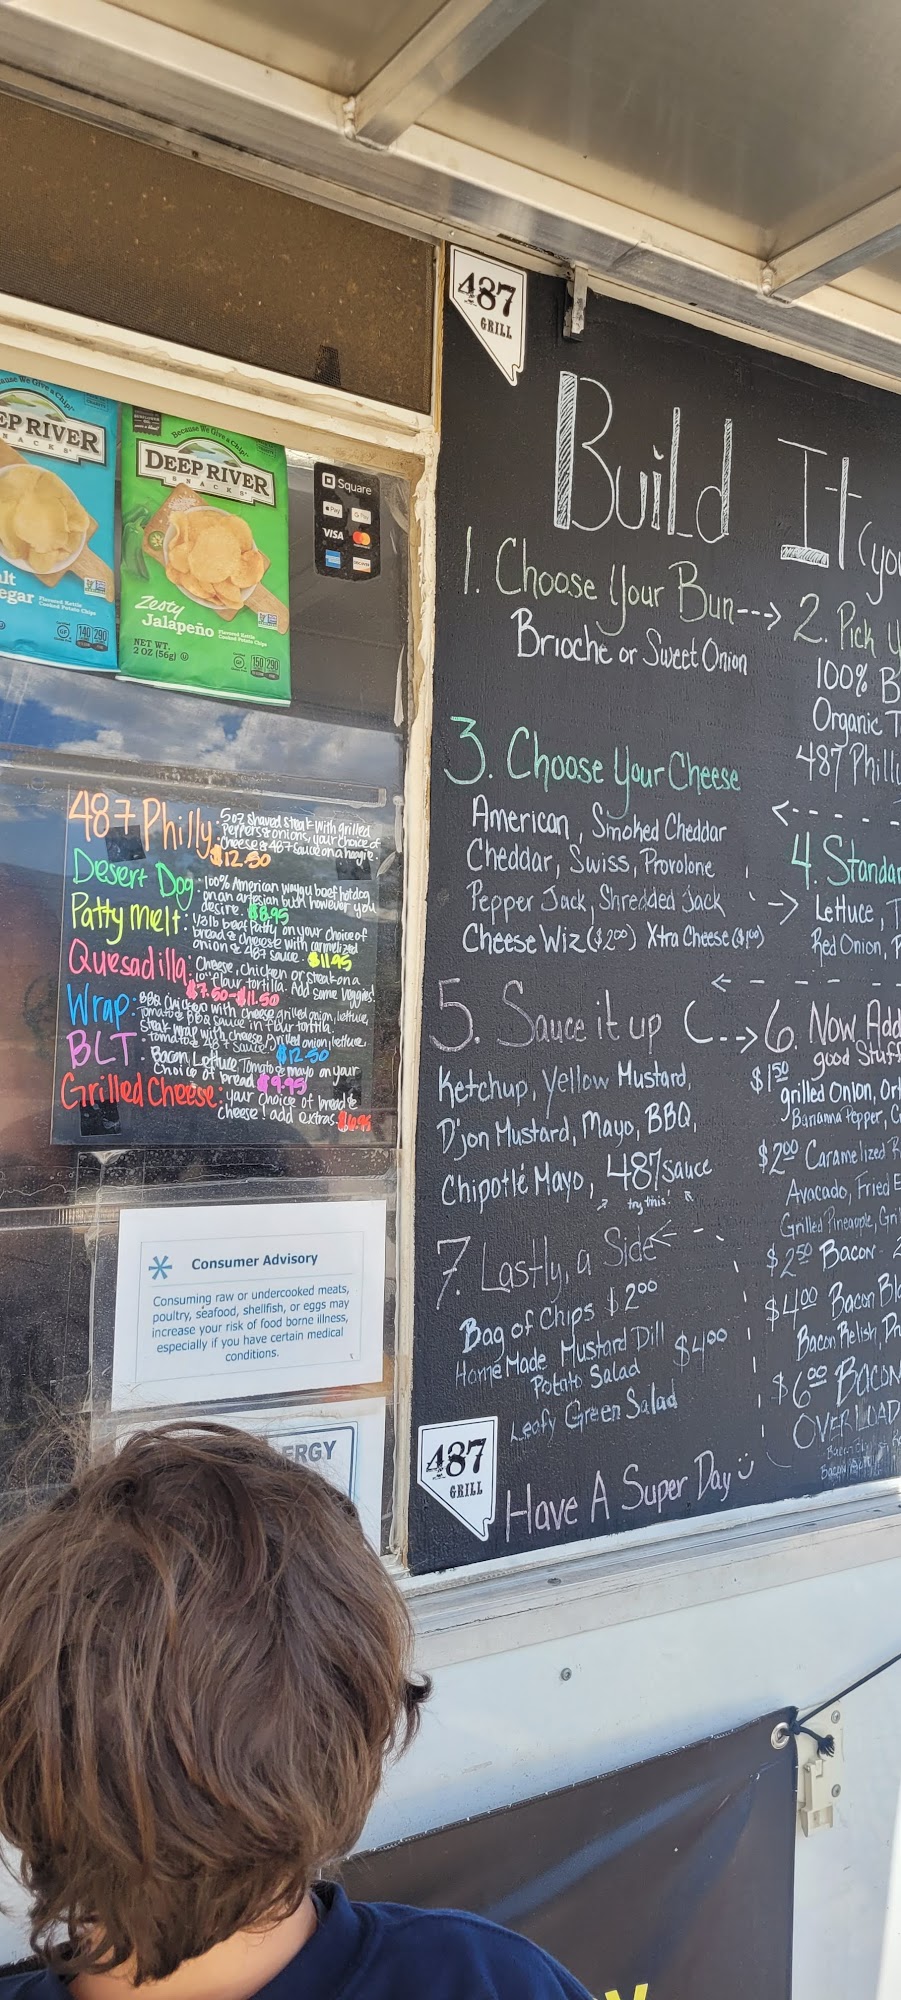 487
GRILL
Because We Give a Chip!
DEEP RIVER
SNACKS
Zesty
Jalapeño
Flavored Kettle
Cooked Potato Chips
NET WT.
2 OZ (56g)
150 290
EP RIVER
NACKS
alt
egar
Flavored Kettle
Cooked Potato Chips
140 290
Square
Pay
G Pay
VISA
487 Philly: 5oz shaved steak with grilled
Peppers & onions, your choice of
cheese & 487 sauce on a hoagie.
$12.50
Desert Dog: 100% American wagyu beef hotdog
on an artesian bun however you
desire. $8.95
Patty melt: 1/3lb beef patty on your choice of
bread & cheese with carmelized
onion & 487 sauce. $11.95
Quesadilla: Cheese, Chicken or steak on a
10" flour tortilla. Add some veggies!
$7.50-$11.50
Wrap: BBQ Chicken with cheese grilled onion, lettuce,
Tomato & BBQ sauce in flour tortilla.
Steak wrap with cheese, grilled onion, lettuce,
tomato & 487 sauce. $12.50
BLT: Bacon Lettuce Tomato & mayo on your
Choice of bread $9.95
Grilled Cheese: your choice of bread &
cheese! add extras. $6.95
Consumer Advisory
Consuming raw or undercooked meats,
poultry, seafood, shellfish, or eggs may
increase your risk of food borne illness,
especially if you have certain medical
conditions.
ERGY
Build It (yo
1. Choose Your Bun
Brioche or Sweet Onion
2. Pick Y
100% B
Organic T
487 Philly
3. Choose Your Cheese
American, Smoked Cheddar
Cheddar, Swiss, Provolone
Pepper Jack, Shredded Jack
Cheese Wiz ($2.00) Xtra Cheese ($1.00)
4. Standar
Lettuce, T
Red Onion, P
5. Sauce it up
Ketchup, Yellow Mustard,
D'jon Mustard, Mayo, BBQ,
Chipotlé Mayo, 487 sauce
try this!
6. Now Add
good Stuff
$1.50
grilled Onion, Ort
Bananna Pepper, C
$2.00 Caramelized R
Avacado, Fried E
Grilled Pineapple, Gri
$2.50 Bacon - 2
$4.00 Bacon Bl
Bacon Relish,
$6.00 BACON
OVERLOAD
7. Lastly, a Side
Bag of Chips $2.00
Home Made Mustard Dill
Potato Salad
$4.00
Leafy Green Salad
487
GRILL
Have A Super Day